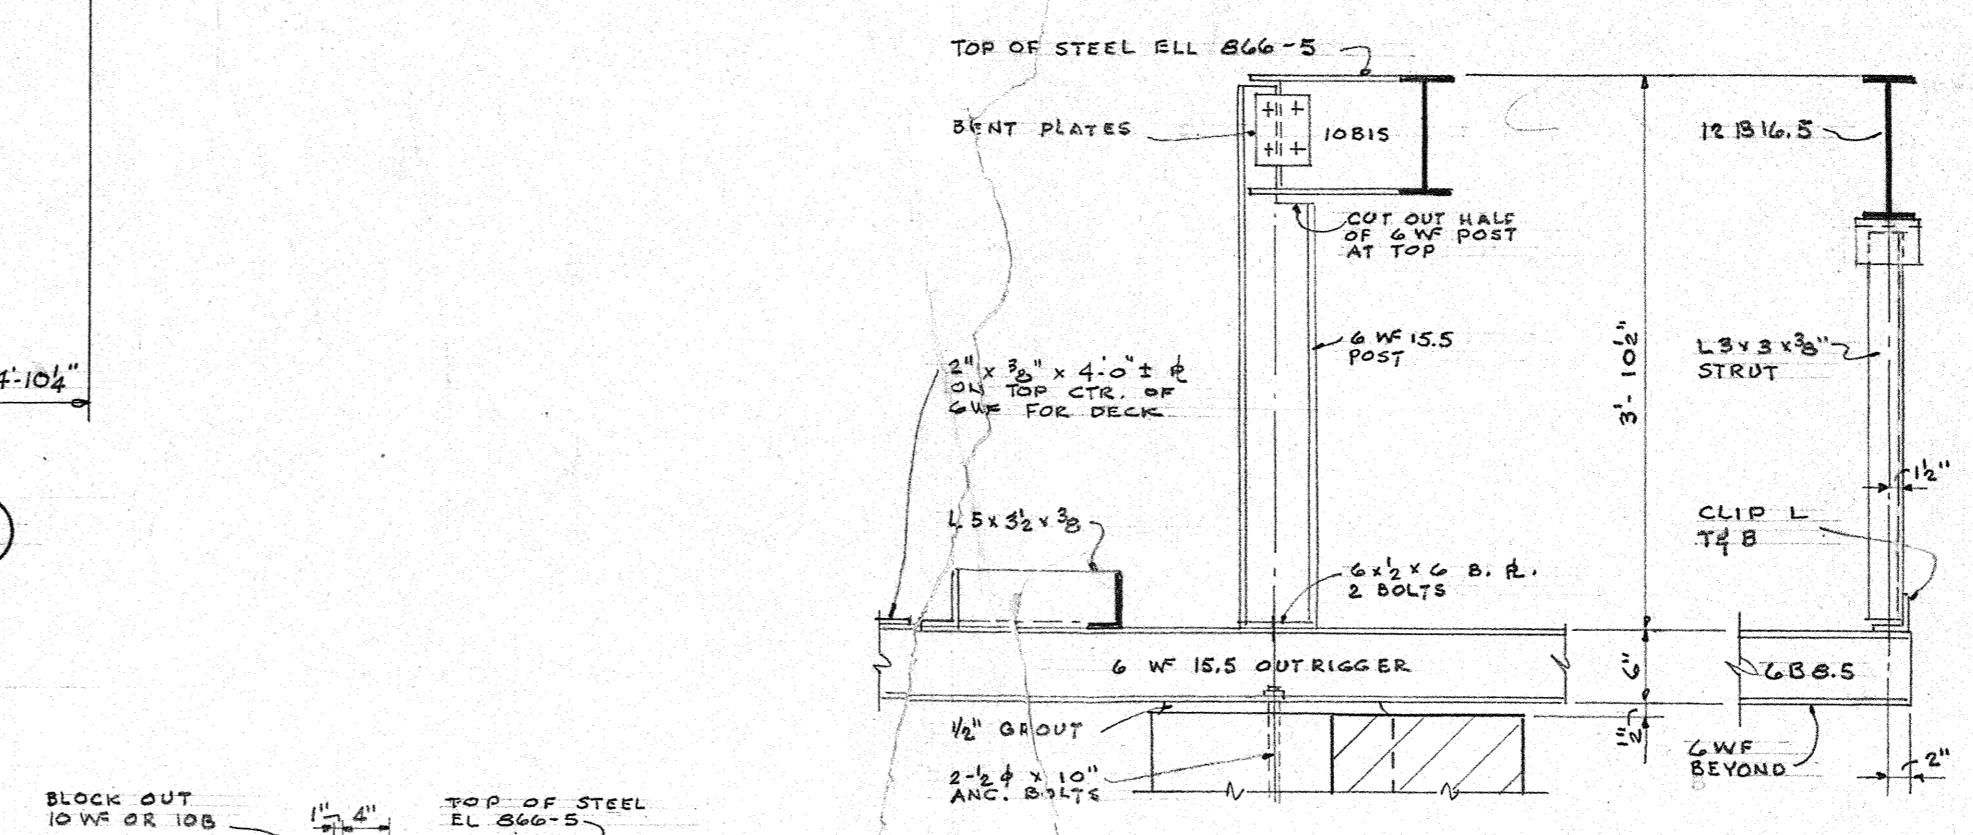 TOP OF STEEL ELL 866-5
BENT PLATES
10B15
12 B 16.5
CUT OUT HALF
OF 6 WF POST
AT TOP
6 WF 15.5
POST
3'-10½"
L 3 x 3 x 3/8"
STRUT
4'-10¼"
2" x 3/8" x 4'-0" ± PL
ON TOP CTR. OF
6 WF FOR DECK
1½"
L 5 x 3½ x 3/8
CLIP L
T & B
6 x ½ x 6 B. PL.
2 BOLTS
6 WF 15.5 OUTRIGGER
6"
6 B 8.5
1/2" GROUT
½"
6 WF
BEYOND
2"
2-½ ϕ x 10"
ANC. BOLTS
BLOCK OUT
10 WF OR 10B
1"
4"
TOP OF STEEL
EL 866-5